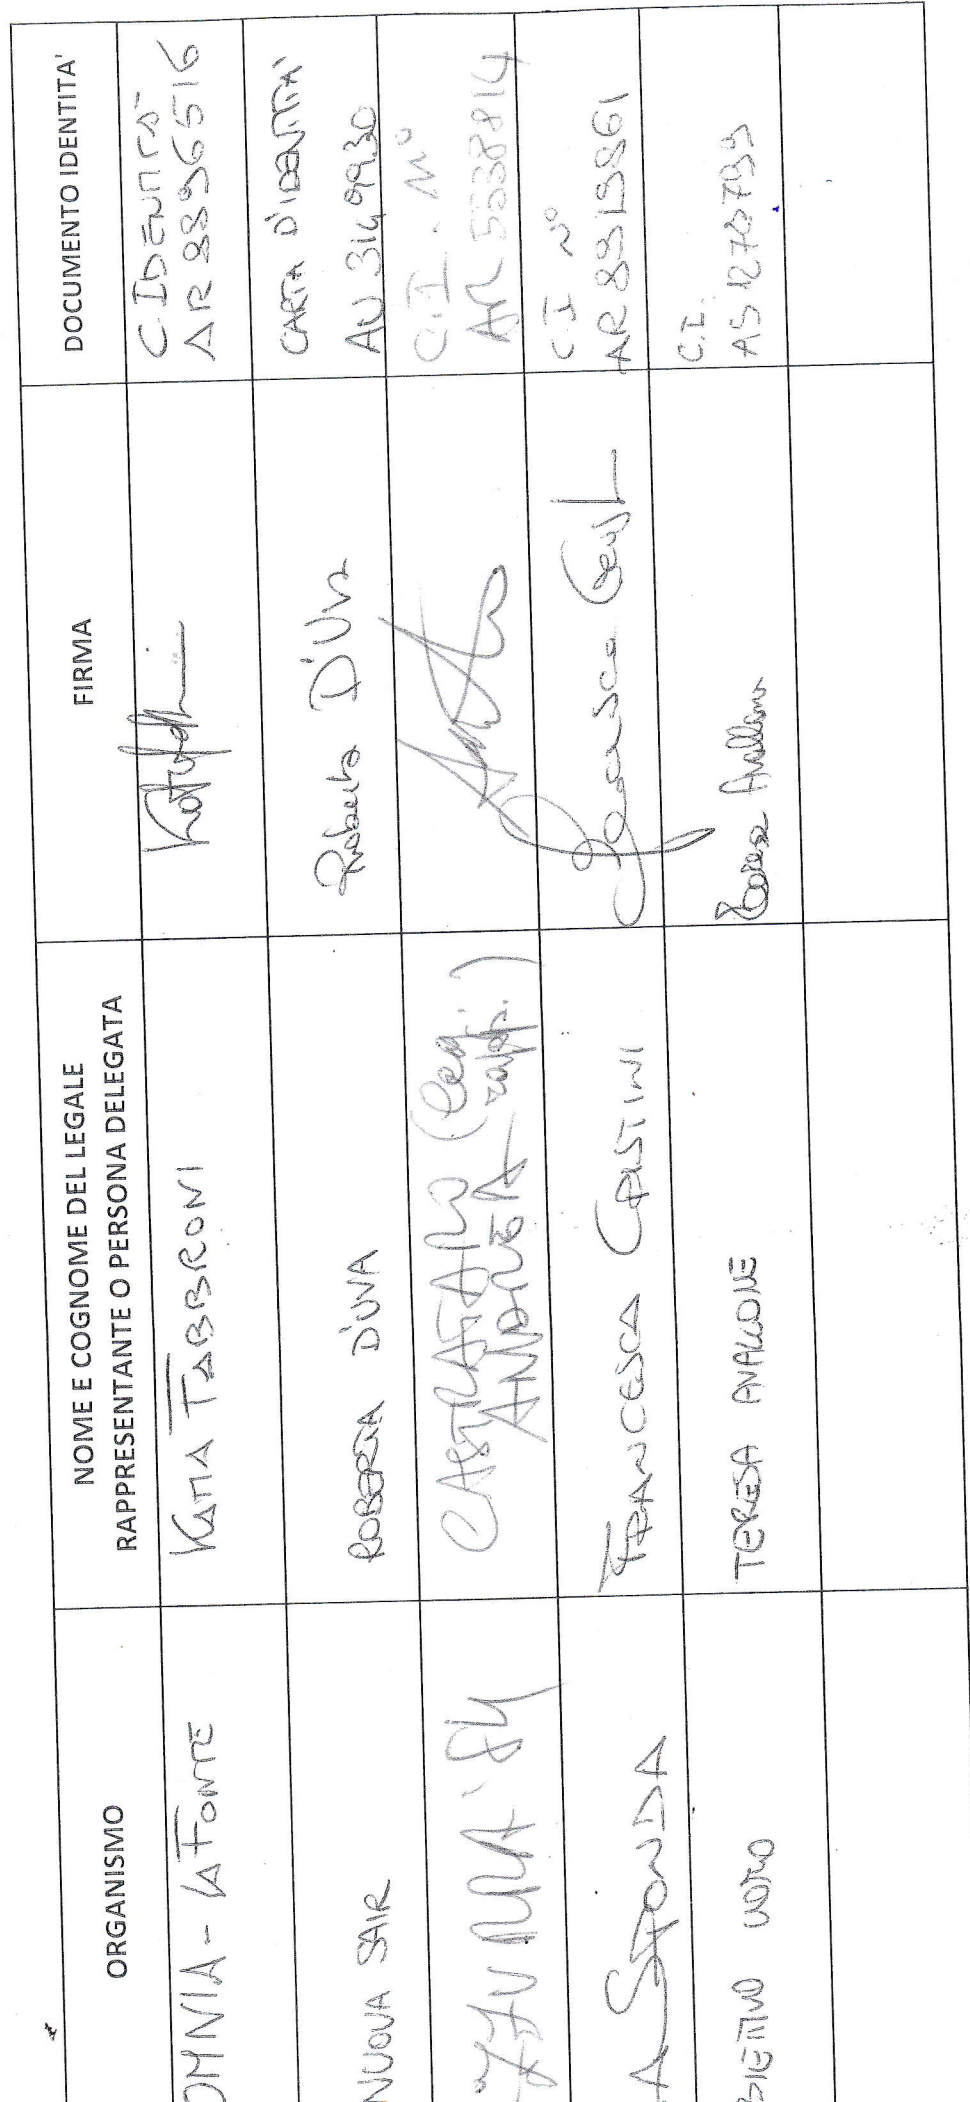 ORGANISMO
NOME E COGNOME DEL LEGALE
RAPPRESENTANTE O PERSONA DELEGATA
FIRMA
DOCUMENTO IDENTITA'
OMNIA - LA FONTE
KATIA FABBRONI
C. IDENTITÀ
AR 8896516
NUOVA SAIR
ROBERTA D'UVA
Roberta D'Uva
CARTA D'IDENTITA'
AU 3149930
CASTRATARO
ANDREA
C.I. N°
AR 5538814
A SPONDA
FRANCESCA CASTINI
Francesca
C.I N°
AR 8919861
BIETTIVO UOMO
TERESA AVALLONE
Teresa Avallone
C.I.